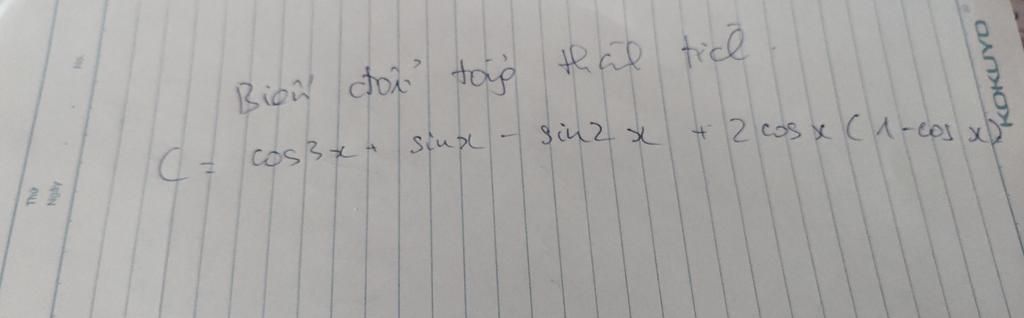 Biến đổi tổng thành tích.
C = cos3x + sinx - sin2x + 2cosx(1-cosx)
KOKUYO
No.
Thứ
Ngày